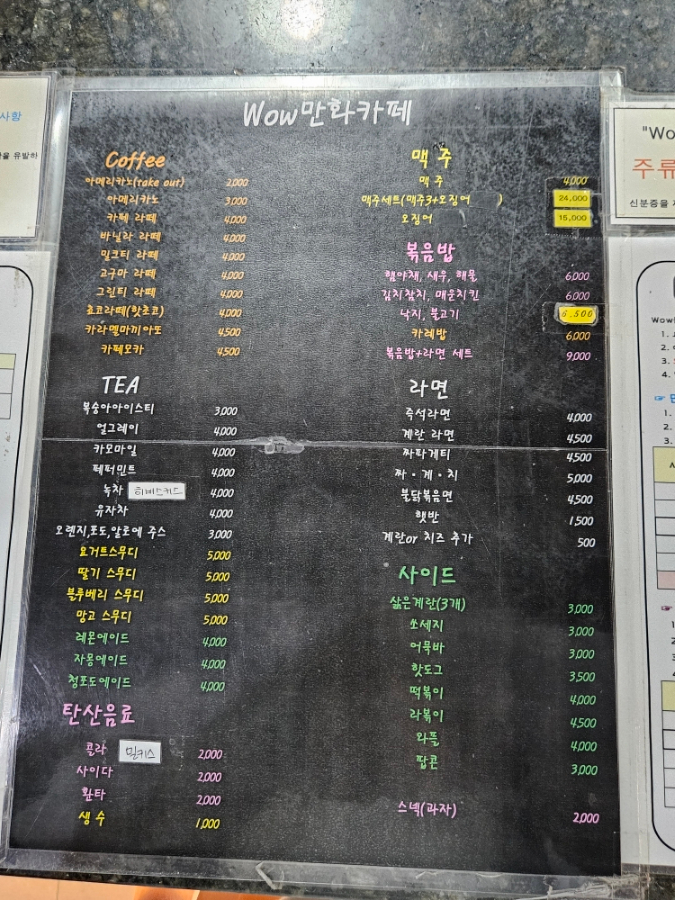 Wow만화카페
Coffee
아메리카노(take out) 2,000
아메리카노 3,000
카페 라떼 4,000
바닐라 라떼 4,000
밀크티 라떼 4,000
고구마 라떼 4,000
그린티 라떼 4,000
쵸코라떼(핫쵸코) 4,000
카라멜마끼아또 4,500
카페모카 4,500
TEA
복숭아아이스티 3,000
얼그레이 4,000
카모마일 4,000
페퍼민트 4,000
녹차 히비스커드 4,000
유자차 4,000
오렌지,포도,알로에 주스 3,000
요거트스무디 5,000
딸기 스무디 5,000
블루베리 스무디 5,000
망고 스무디 5,000
레몬에이드 4,000
자몽에이드 4,000
청포도에이드 4,000
탄산음료
콜라 밀키스 2,000
사이다 2,000
환타 2,000
생수 1,000
맥주
맥주 4,000
맥주세트(맥주3+오징어 ) 24,000
오징어 15,000
볶음밥
햄야채, 새우, 해물 6,000
김치참치, 매운치킨 6,000
낙지, 불고기 6,500
카레밥 6,000
볶음밥+라면 세트 9,000
라면
즉석라면 4,000
계란 라면 4,500
짜파게티 4,500
짜·계·치 5,000
불닭볶음면 4,500
햇반 1,500
계란or 치즈 추가 500
사이드
삶은계란(3개) 3,000
쏘세지 3,000
어묵바 3,000
핫도그 3,500
떡볶이 4,000
라볶이 4,500
와플 4,000
팝콘 3,000
스넥(과자) 2,000
사항
을 유발하
"Wo
주류
신분증을